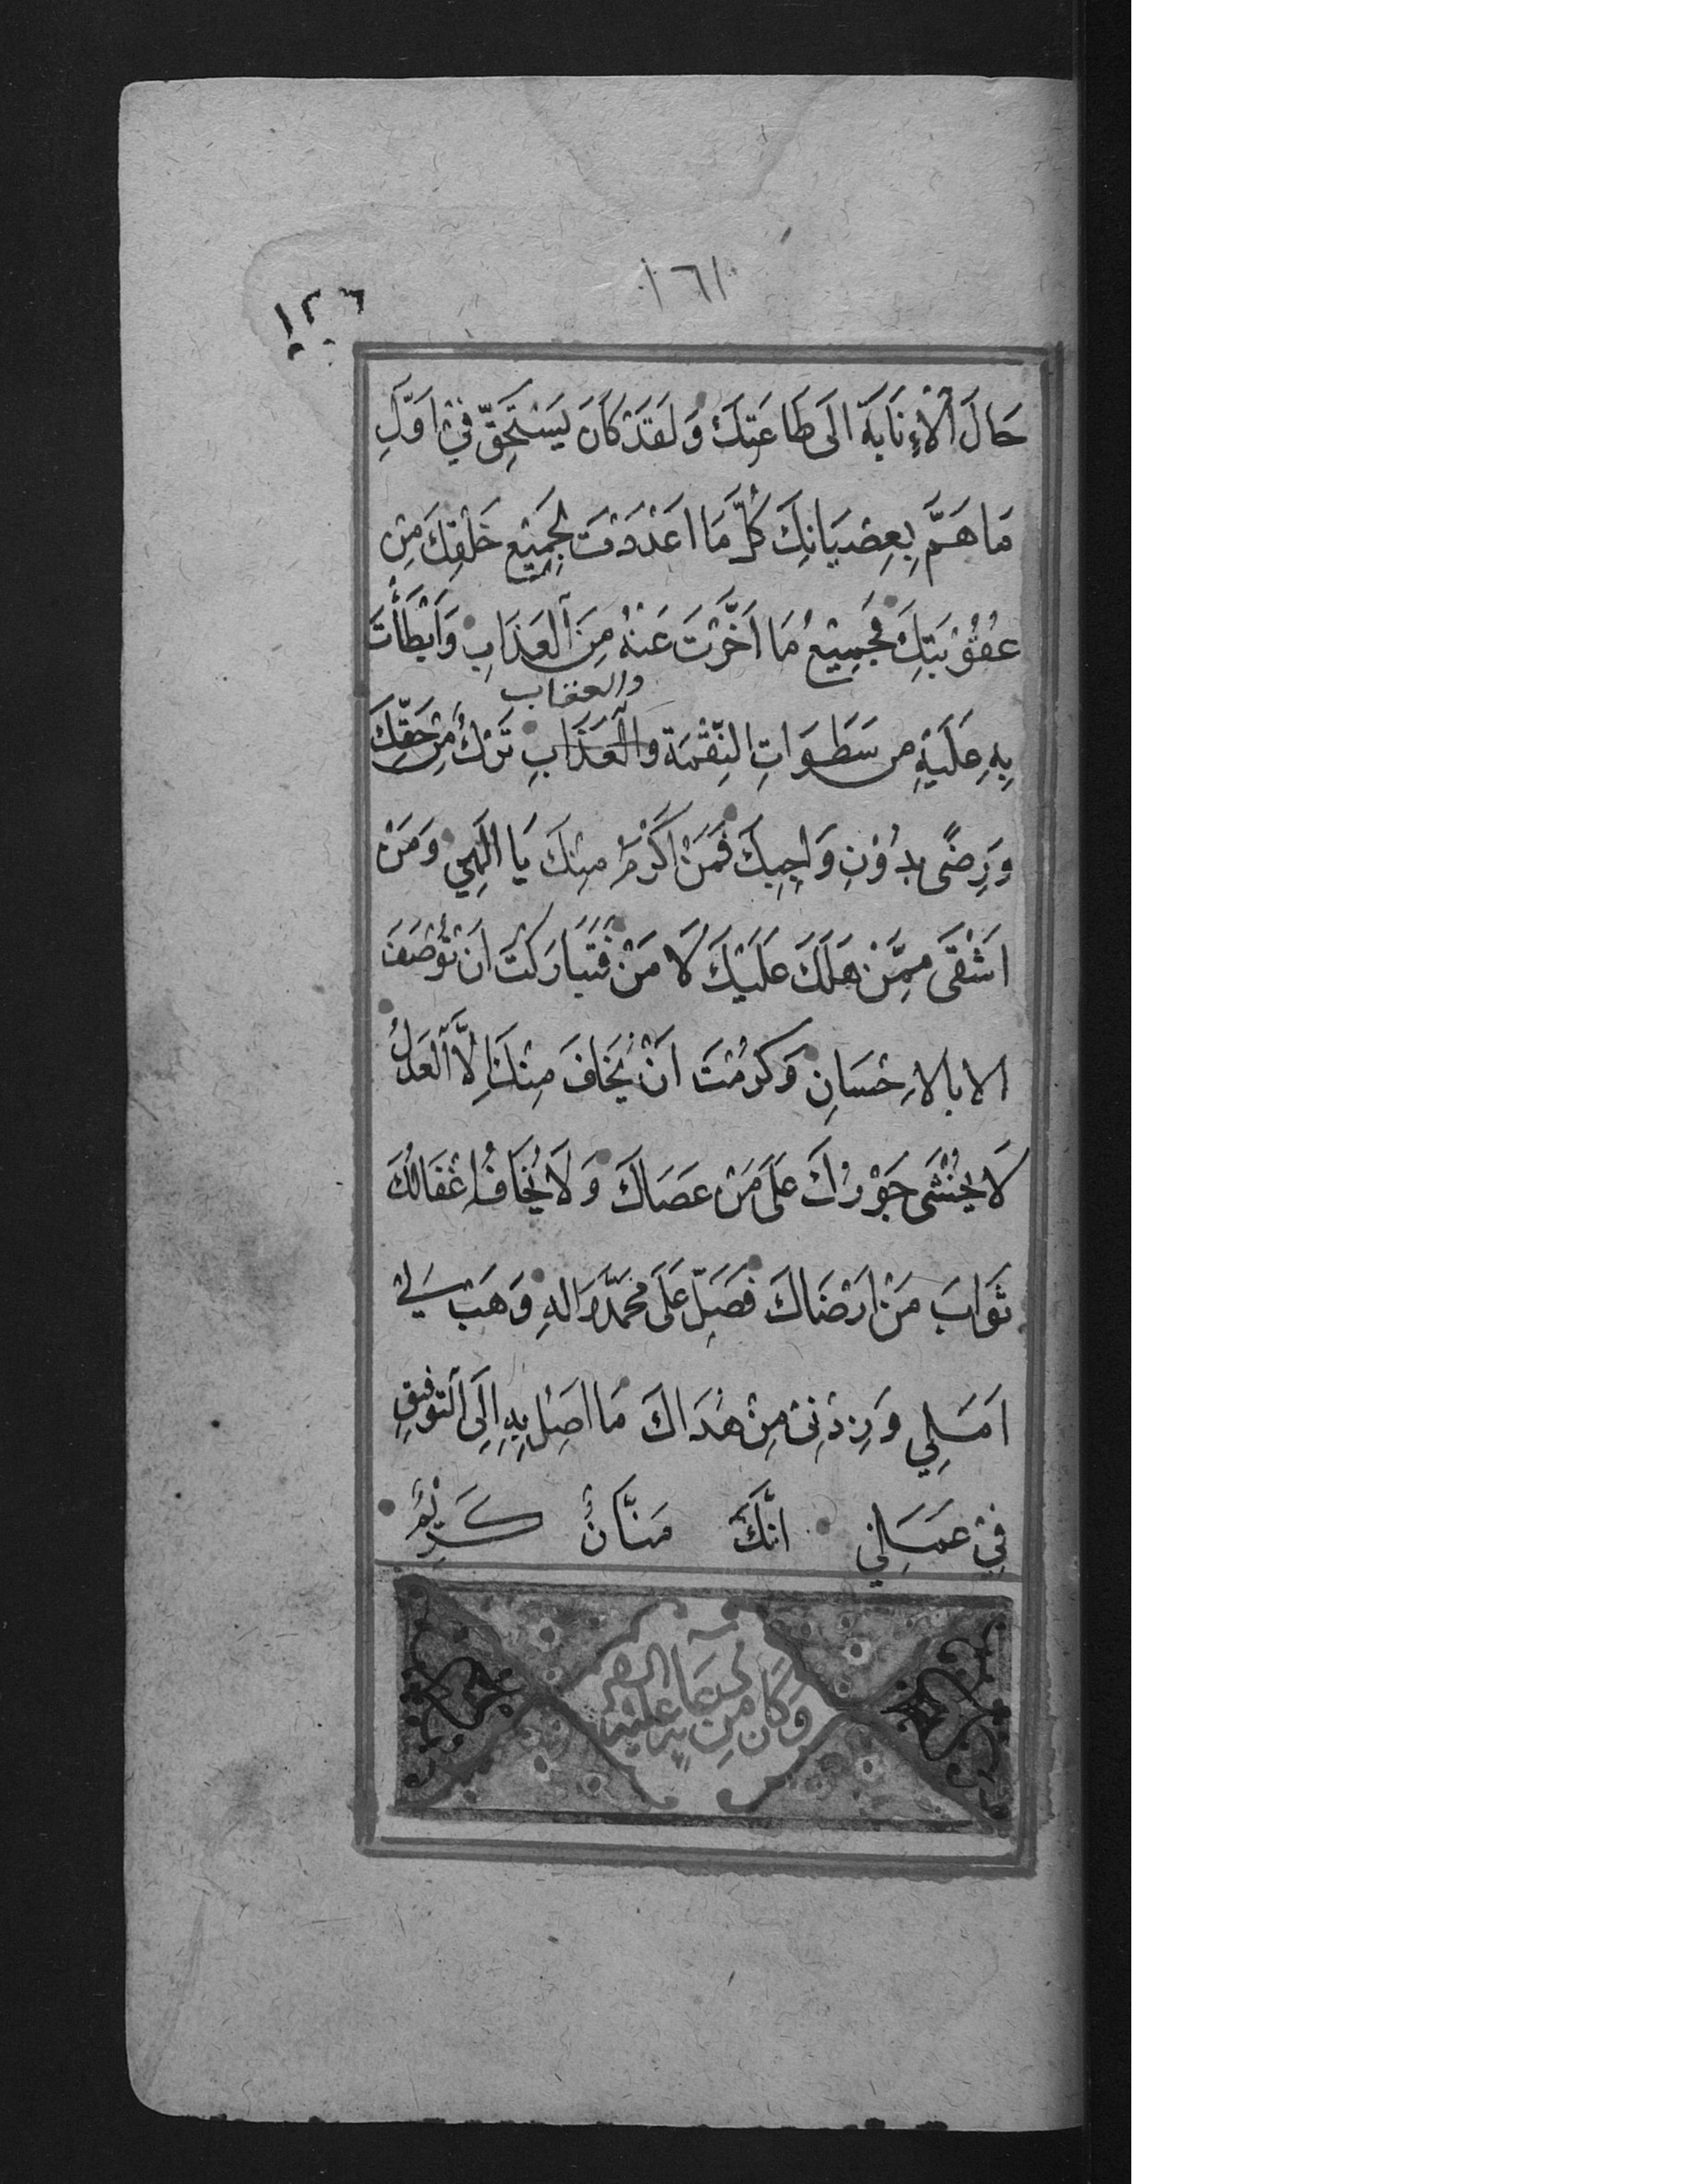 ١٦١
١٢٦
حَالَ الْاِنَابَةِ اِلَى طَاعَتِكَ وَلَقَدْ كَانَ يَسْتَحِقُّ فِيْ اَوَّلِ
مَا هَمَّ بِعِصْيَانِكَ كُلَّ مَا اَعْدَدْتَ لِجَمِيْعِ خَلْقِكَ مِنْ
عُقُوْبَتِكَ فَجَمِيْعُ مَا اَخَّرْتَ عَنْهُ مِنَ الْعَذَابِ وَاَبْطَأْتَ
والعقاب
بِهِ عَلَيْهِ من سَطَوَاتِ النِّقْمَة والْعَذَابِ تَرْكٌ مِنْ حَقِّكَ
وَرِضًى بِدُوْنِ وَاجِبِكَ فَمَنْ اَكْرَمُ مِنْكَ يَا اِلٰهِي وَمَنْ
اَشْقَى مِمَّنْ هَلَكَ عَلَيْكَ لَا مَنْ فَتَبَارَكْتَ اَنْ تُوْصَفَ
الا بالاِحْسَانِ وَكَرُمْتَ اَنْ يُخَافَ مِنْكَ اِلَّا الْعَدْلُ
لَا يُخْشَى جَوْرُكَ عَلَى مَنْ عَصَاكَ وَلَا يُخَافُ اِغْفَالُكَ
ثَوَابَ مَنْ اَرْضَاكَ فَصَلِّ عَلَى مُحَمَّدٍ وَالِهِ وَهَبْ لِيْ
اَمَلِي وَزِدْنِىْ مِنْ هُدَاكَ مَا اَصِلُ بِهِ اِلَى التَّوْفِيْقِ
فِيْ عَمَلِيْ اِنَّكَ مَنَّانٌ كَرِيْمٌ
وَكَانَ مِنْ دُعَائِهِ عَلَيْهِ